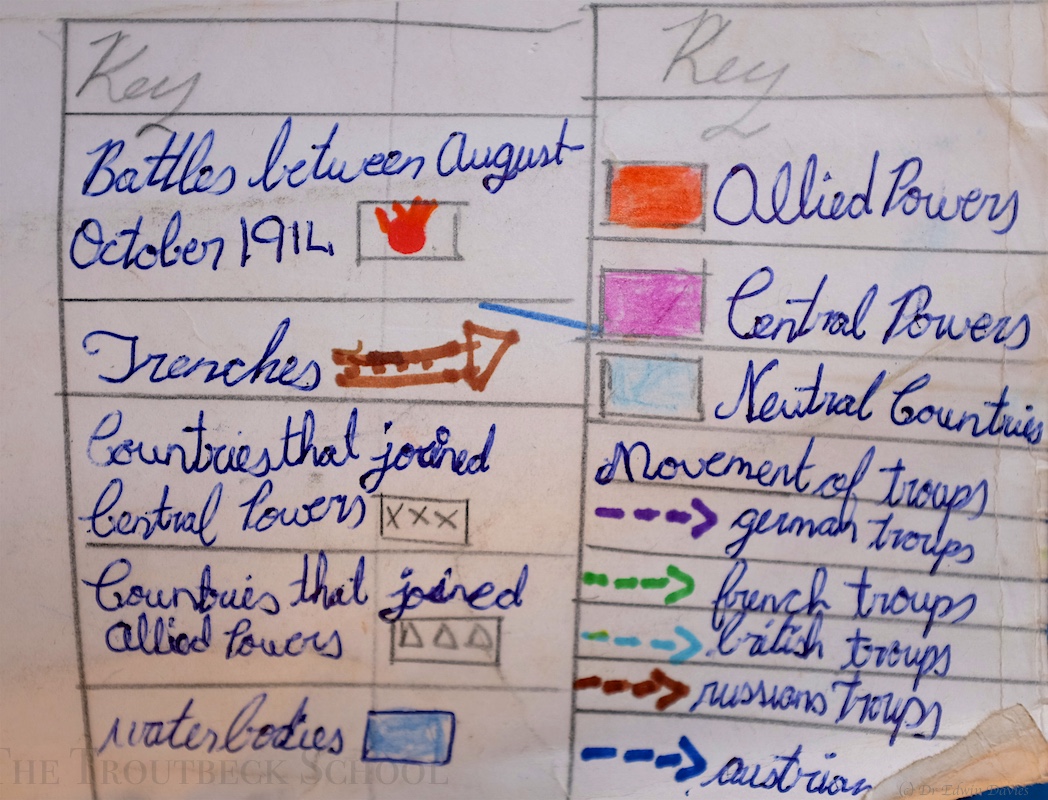 Key
Battles between August
October 1914
Trenches
Countries that joined
Central Powers XXX
Countries that joined
Allied Powers
waterbodies
Key
Allied Powers
Central Powers
Neutral Countries
Movement of troups
german troups
french troups
british troups
russians troups
austrian
THE TROUTBECK SCHOOL
(c) Dr Edwin Davies